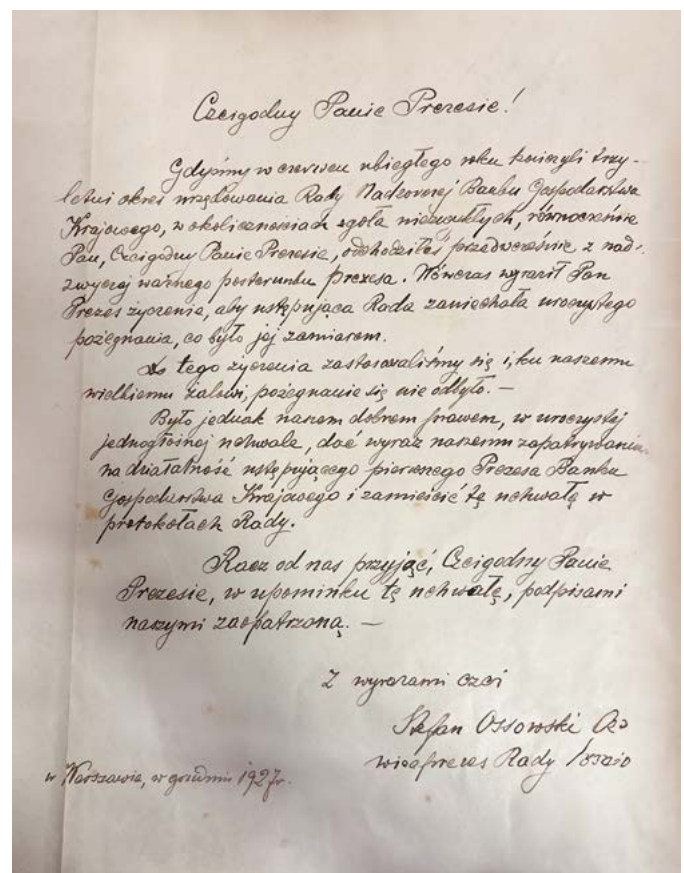 Czcigodny Panie Prezesie!
Gdyśmy w czerwcu ubiegłego roku kończyli trzy-
letni okres urzędowania Rady Nadzorczej Banku Gospodarstwa
Krajowego, w okolicznościach zgoła niezwykłych, równocześnie
Pan, Czcigodny Panie Prezesie, odchodziłeś przedwcześnie z nad-
zwyczaj ważnego posterunku Prezesa. Wówczas wyraził Pan
Prezes życzenie, aby ustępująca Rada zaniechała uroczystego
pożegnania, co było jej zamiarem.
Do tego życzenia zastosowaliśmy się i, ku naszemu
wielkiemu żalowi, pożegnanie się nie odbyło. —
Było jednak naszem dobrem prawem, w uroczystej
jednogłośnej uchwale, dać wyraz naszemu zapatrywaniu
na działalność ustępującego pierwszego Prezesa Banku
Gospodarstwa Krajowego i zamieścić tę uchwałę w
protokołach Rady.
Racz od nas przyjąć, Czcigodny Panie
Prezesie, w upominku tę uchwałę, podpisami
naszymi zaopatrzoną. —
Z wyrazami czci
Stefan Ossowski
wiceprezes Rady
w Warszawie, w grudniu 1927r.